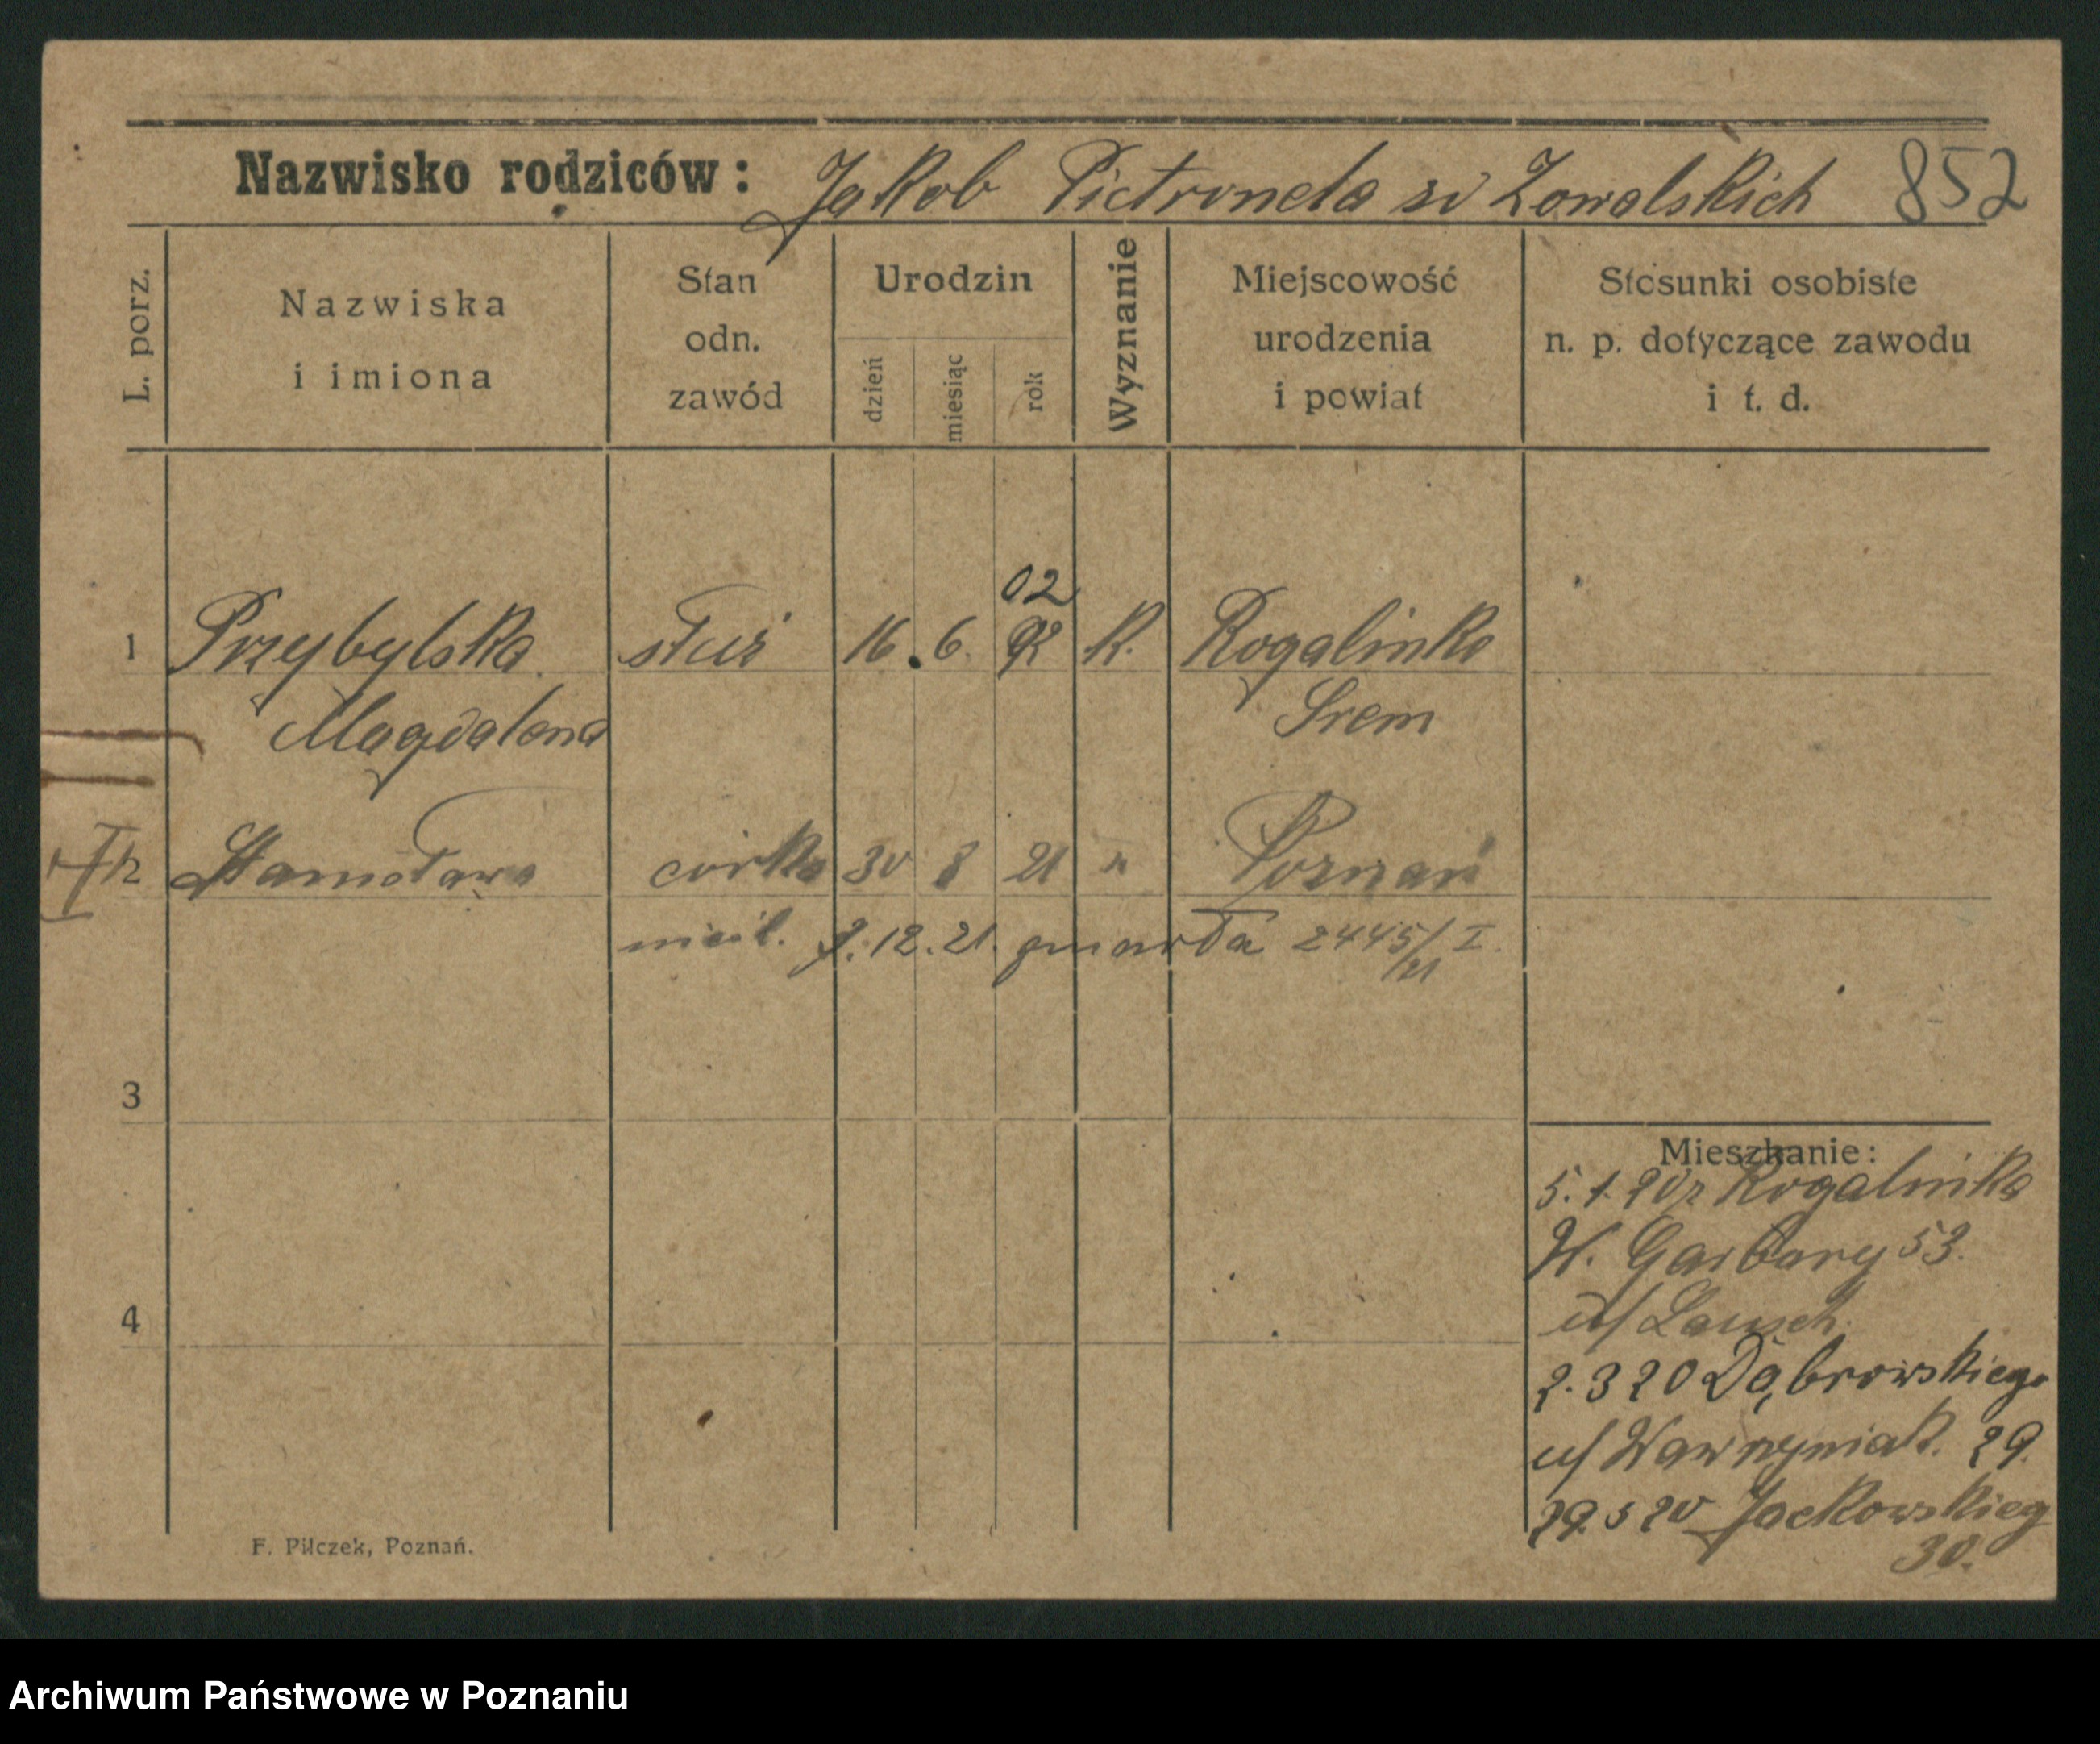 Nazwisko rodziców: Jakob Pietronela Kowalskich 852
L. porz.
Nazwiska
i imiona
Stan
odn.
zawód
Urodzin
dzień
miesiąc
rok
Wyznanie
Miejscowość
urodzenia
i powiat
Stosunki osobiste
n. p. dotyczące zawodu
i t. d.
02
1 Przybylska służ 16. 6. K. Rogalinko
Magdalena Śrem
2 Stanisława córka 30 8 21 " Poznań
nieśl. 9.12.21. zmarła 2445/21 I
3
4
Mieszkanie:
5.1.20 z Rogalinka
W. Garbary 53.
u/ Lausch.
2.3 20 Dąbrowskiego
u/ Wawrzyniak. 29.
29.5 20 Jackowskieg
30.
F. Pilczek, Poznań.
Archiwum Państwowe w Poznaniu